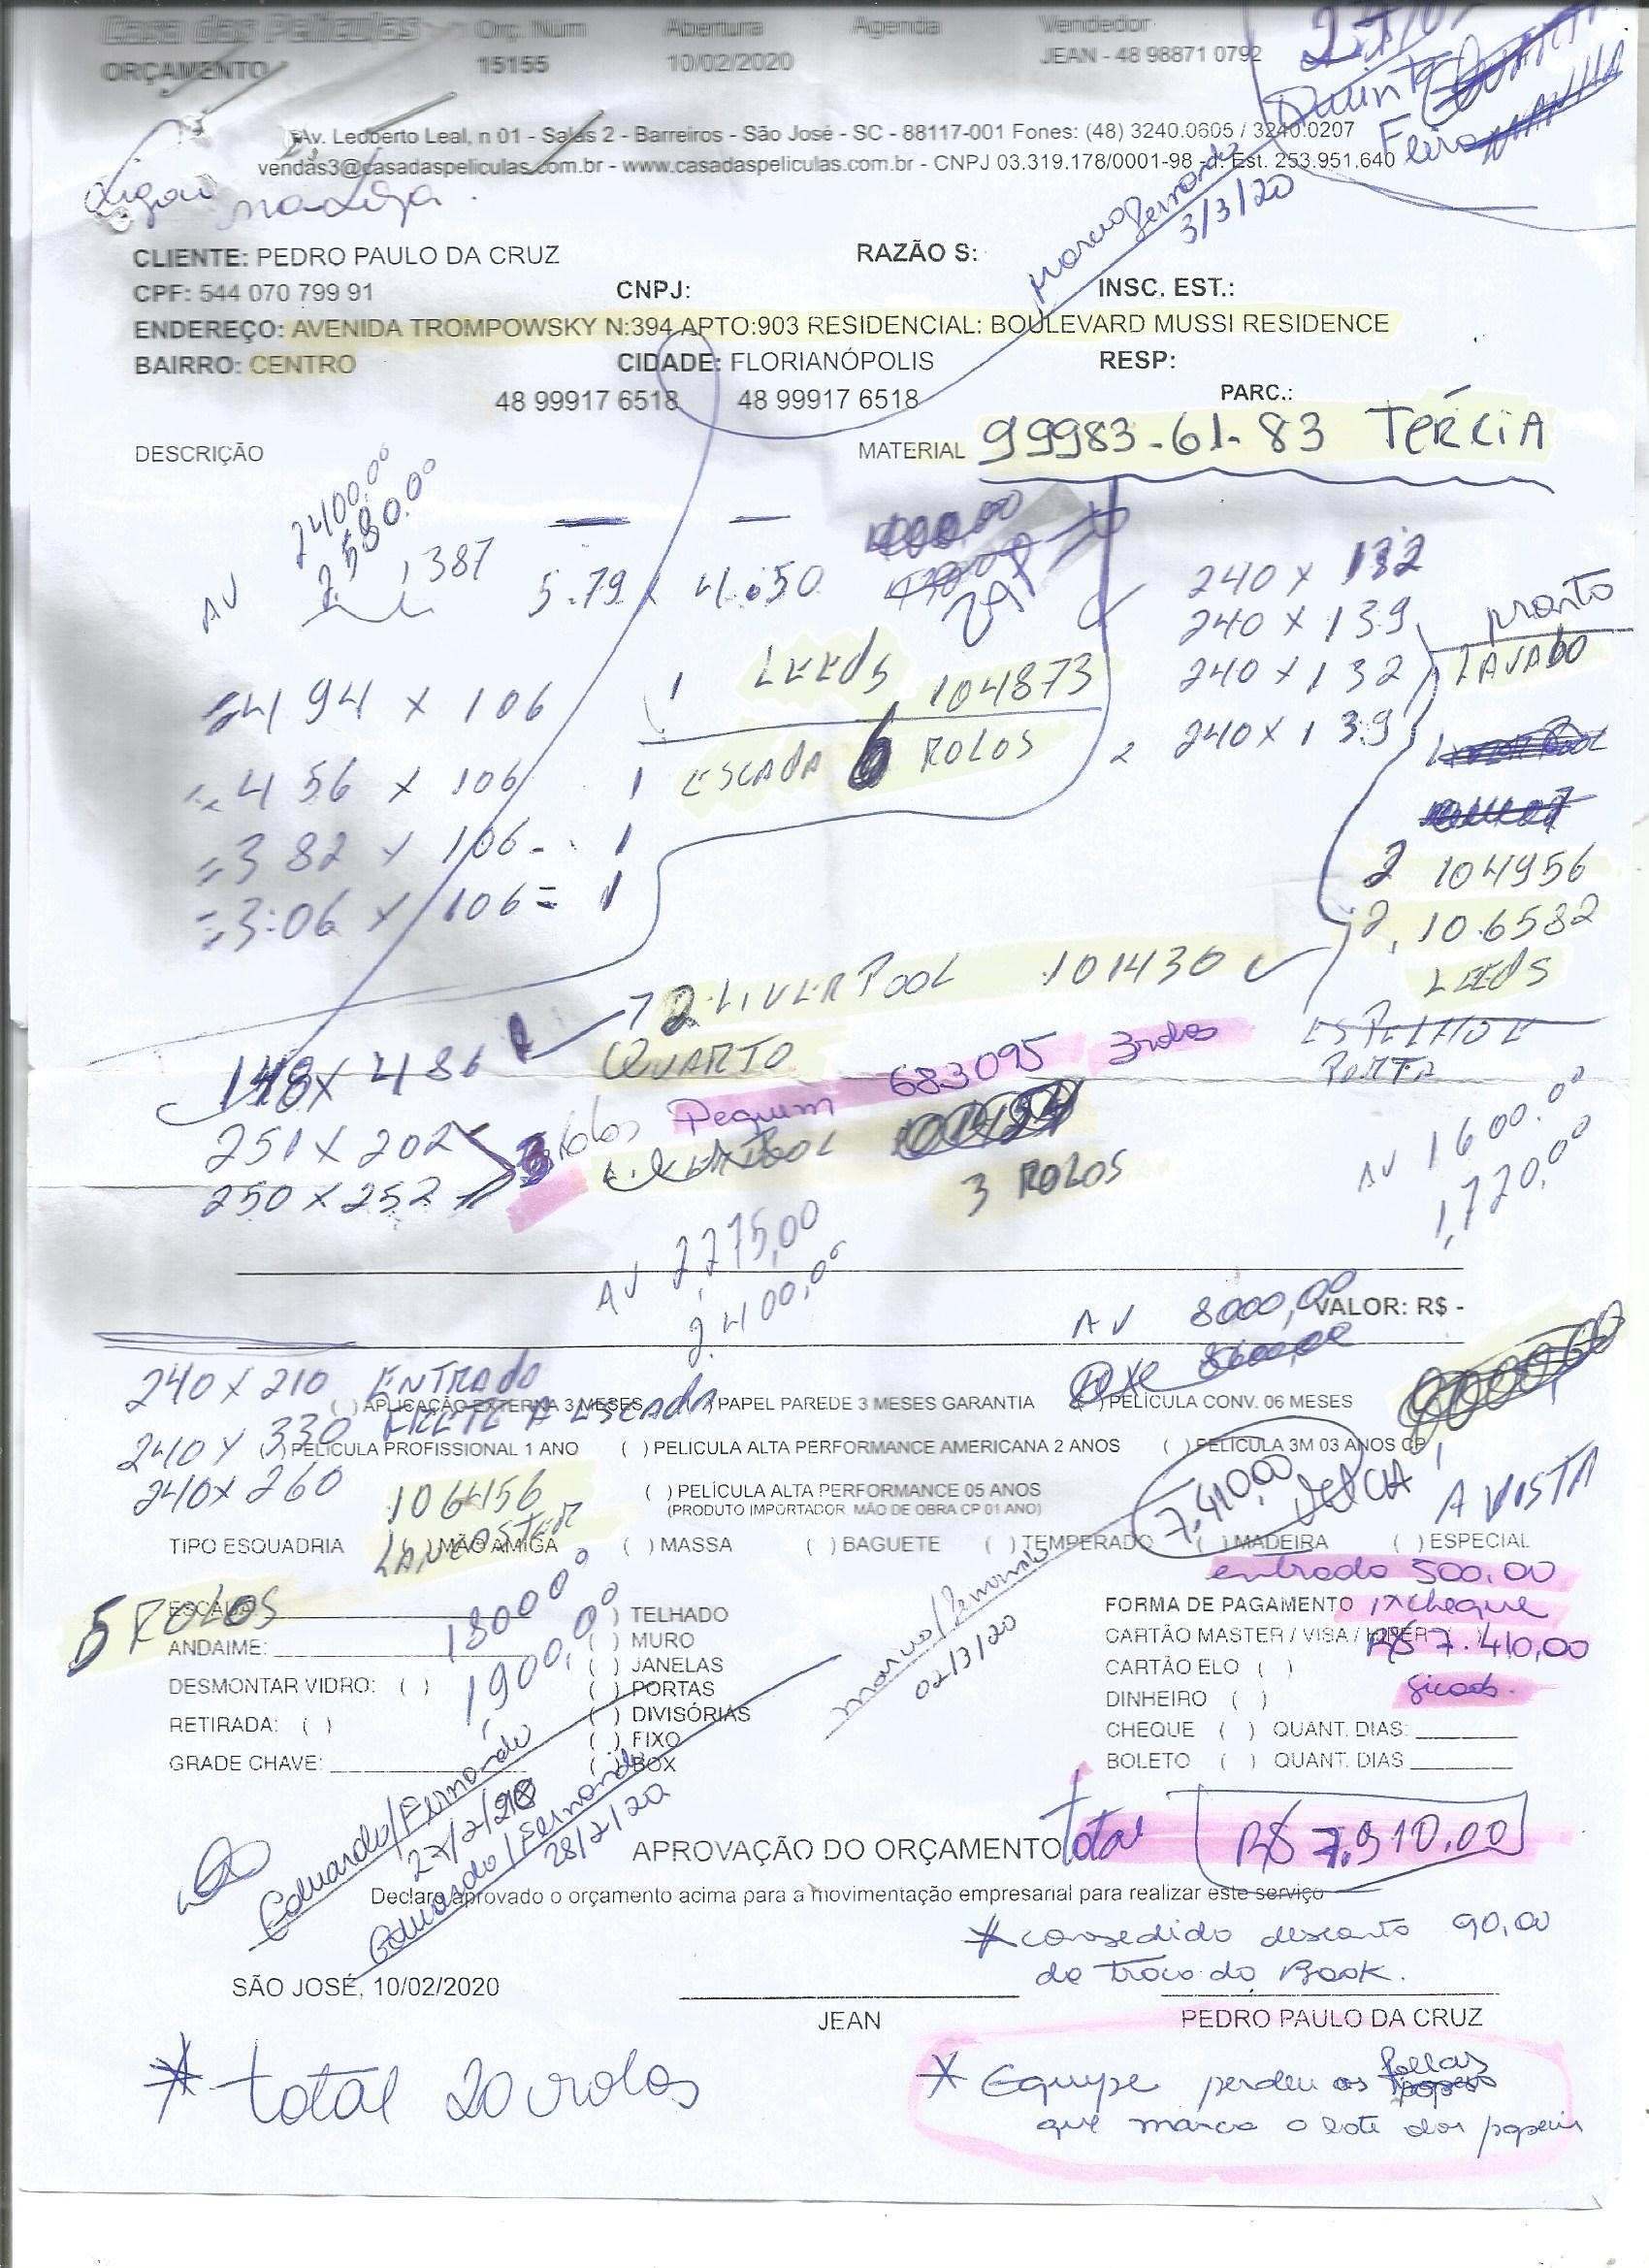 Casa das Películas Orç. Núm Abertura Agenda Vendedor
ORÇAMENTO 15155 10/02/2020 JEAN - 48 98871 0792
Quinta
Feira
Av. Leoberto Leal, n 01 - Salas 2 - Barreiros - São José - SC - 88117-001 Fones: (48) 3240.0605 / 3240.0207
vendas3@casadaspeliculas.com.br - www.casadaspeliculas.com.br - CNPJ 03.319.178/0001-98 - I. Est. 253.951.640
3/3/20
CLIENTE: PEDRO PAULO DA CRUZ RAZÃO S:
CPF: 544 070 799 91 CNPJ: INSC. EST.:
ENDEREÇO: AVENIDA TROMPOWSKY N:394 APTO:903 RESIDENCIAL: BOULEVARD MUSSI RESIDENCE
BAIRRO: CENTRO CIDADE: FLORIANÓPOLIS RESP:
48 99917 6518 48 99917 6518 PARC.:
DESCRIÇÃO MATERIAL 99983-61-83 TÉRCIA
AV 2400,00
2.580,00
1,387 5.79 x 4.50
240 x 132
240 x 139
240 x 132
240 x 139
pronto
LAVABO
494 x 106 1 LEEDS 104873
= 456 x 106 1 ESCADA 6 ROLOS
= 382 x 106 = 1
= 3:06 x 106 = 1
2 104956
2, 106582
LEEDS
ESPELHO E
PORTA
2 LIVERPOOL 101430
148 x 486 QUARTO
Pequim 683095 3 rolos
251 x 202 3 Rolos
250 x 252 3 ROLOS
AV 1600,00
1,720,00
AV 2,275,00
2.400,00
AV 8000,00 VALOR: R$ -
240 x 210 ENTRADA
( ) APLICAÇÃO EXTERNA 3 MESES ( ) PAPEL PAREDE 3 MESES GARANTIA ( ) PELÍCULA CONV. 06 MESES
240 x 330 FRETE A ESCADA
( ) PELÍCULA PROFISSIONAL 1 ANO ( ) PELÍCULA ALTA PERFORMANCE AMERICANA 2 ANOS ( ) PELÍCULA 3M 03 ANOS CP
240 x 260 106456
LANCOSTER
( ) PELÍCULA ALTA PERFORMANCE 05 ANOS
(PRODUTO IMPORTADOR MÃO DE OBRA CP 01 ANO)
7,410,00 A VISTA
TIPO ESQUADRIA ( ) MÃO AMIGA ( ) MASSA ( ) BAGUETE ( ) TEMPERADO ( ) MADEIRA ( ) ESPECIAL
entrada 500,00
5 ROLOS 1800,00
1900,00
ESCADA: ( ) TELHADO FORMA DE PAGAMENTO 1x cheque
ANDAIME: ( ) MURO CARTÃO MASTER / VISA / HIPER ( ) R$ 7.410,00
( ) JANELAS CARTÃO ELO ( )
DESMONTAR VIDRO: ( ) ( ) PORTAS DINHEIRO ( ) Sicoob.
RETIRADA: ( ) ( ) DIVISÓRIAS
( ) FIXO CHEQUE ( ) QUANT. DIAS:
GRADE CHAVE: ( ) BOX BOLETO ( ) QUANT. DIAS
Marcio/Fernando
02/3/20
Eduardo/Fernando
27/2/20
Eduardo/Fernando
28/2/20
APROVAÇÃO DO ORÇAMENTO total R$ 7.910,00
Declaro aprovado o orçamento acima para a movimentação empresarial para realizar este serviço
* consedido desconto 90,00
de troca do Book.
SÃO JOSÉ, 10/02/2020
JEAN PEDRO PAULO DA CRUZ
* total 20 rolos
* Equipe perdeu as folhas
que marca o lote dos papeis